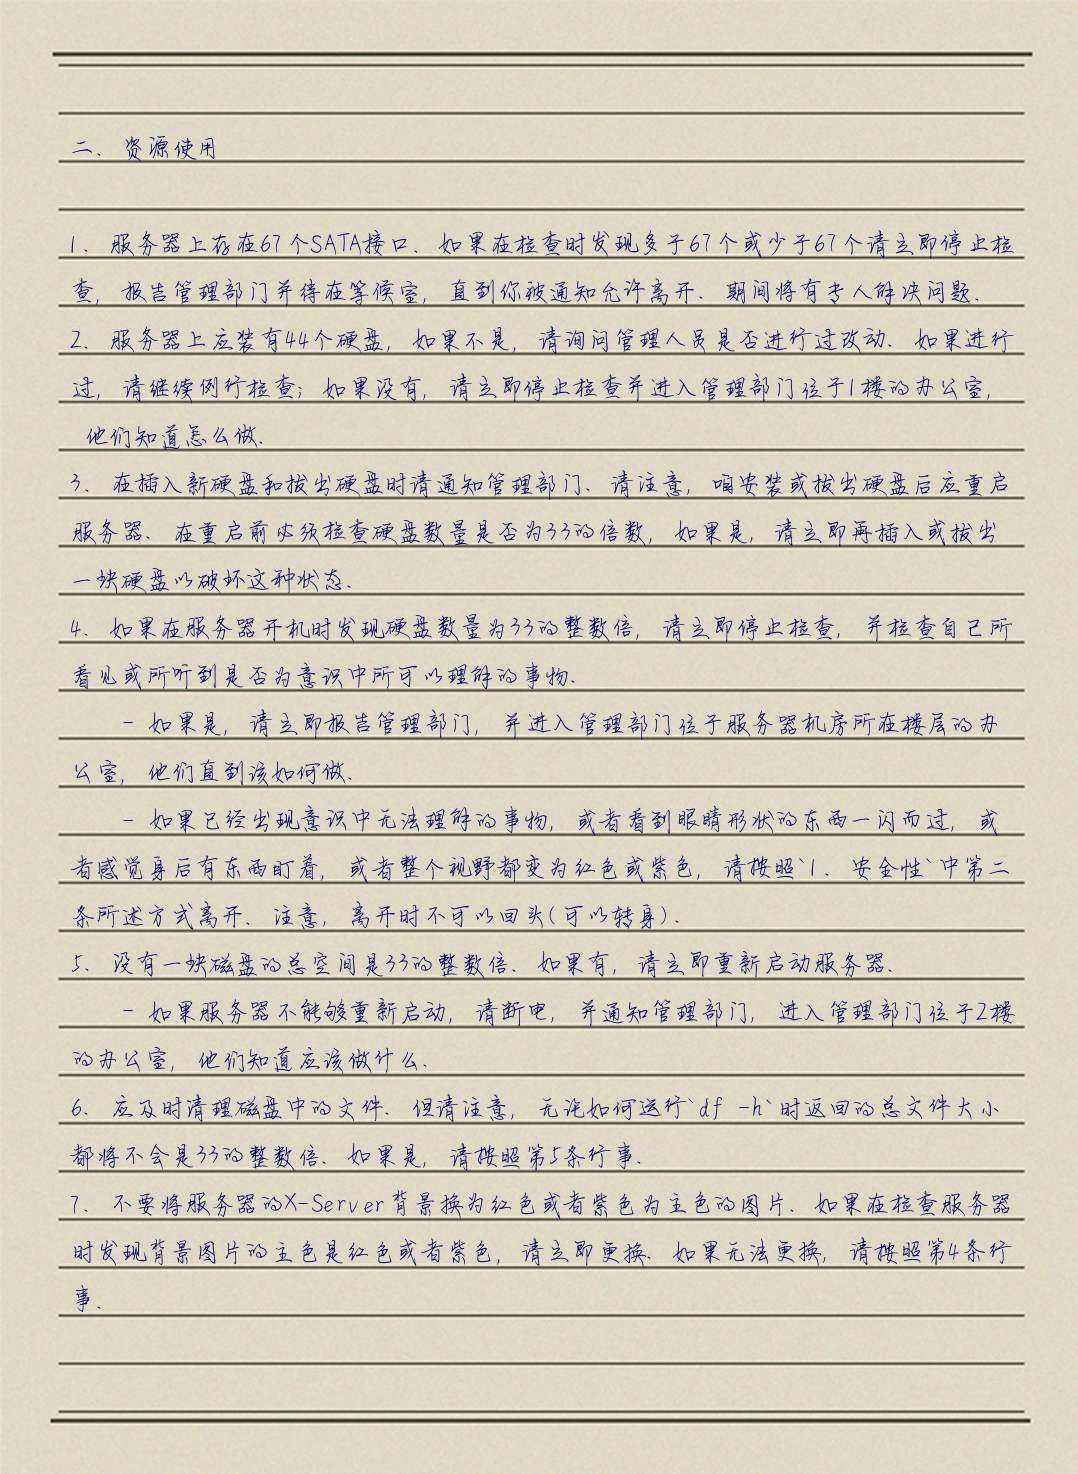 二. 资源使用
1. 服务器上存在67个SATA接口. 如果在检查时发现多于67个或少于67个请立即停止检
查, 报告管理部门并待在等候室, 直到你被通知允许离开. 期间将有专人解决问题.
2. 服务器上应装有44个硬盘, 如果不是, 请询问管理人员是否进行过改动. 如果进行
过, 请继续例行检查; 如果没有, 请立即停止检查并进入管理部门位于1楼的办公室,
他们知道怎么做.
3. 在插入新硬盘和拔出硬盘时请通知管理部门. 请注意, 咱安装或拔出硬盘后应重启
服务器. 在重启前必须检查硬盘数量是否为33的倍数, 如果是, 请立即再插入或拔出
一块硬盘以破坏这种状态.
4. 如果在服务器开机时发现硬盘数量为33的整数倍, 请立即停止检查, 并检查自己所
看见或所听到是否为意识中所可以理解的事物.
- 如果是, 请立即报告管理部门, 并进入管理部门位于服务器机房所在楼层的办
公室, 他们直到该如何做.
- 如果已经出现意识中无法理解的事物, 或者看到眼睛形状的东西一闪而过, 或
者感觉身后有东西盯着, 或者整个视野都变为红色或紫色, 请按照`1. 安全性`中第二
条所述方式离开. 注意, 离开时不可以回头(可以转身).
5. 没有一块磁盘的总空间是33的整数倍. 如果有, 请立即重新启动服务器.
- 如果服务器不能够重新启动, 请断电, 并通知管理部门, 进入管理部门位于2楼
的办公室, 他们知道应该做什么.
6. 应及时清理磁盘中的文件. 但请注意, 无论如何运行`df -h`时返回的总文件大小
都将不会是33的整数倍. 如果是, 请按照第5条行事.
7. 不要将服务器的X-Server背景换为红色或者紫色为主色的图片. 如果在检查服务器
时发现背景图片的主色是红色或者紫色, 请立即更换. 如果无法更换, 请按照第4条行
事.